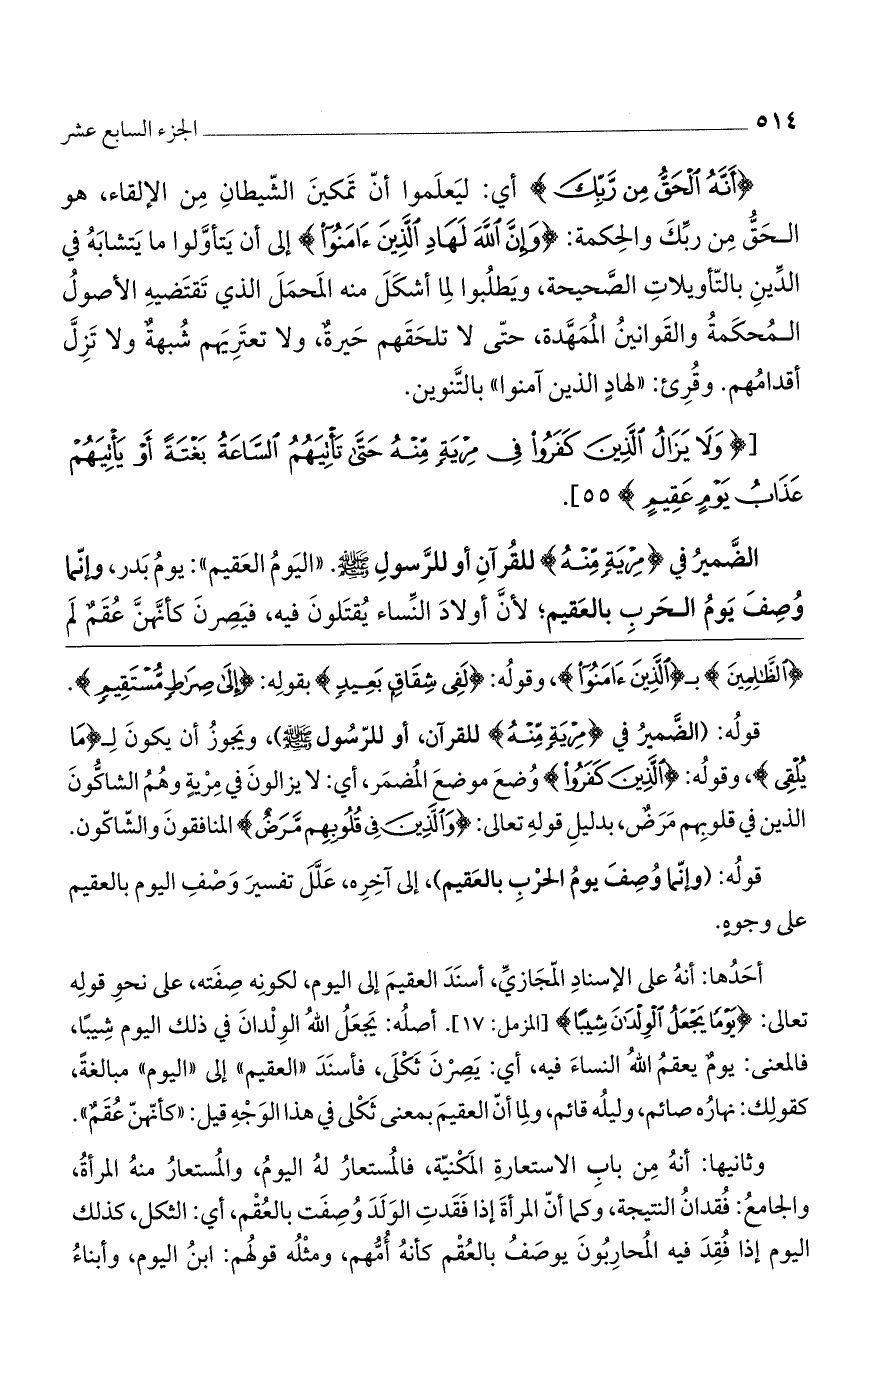 ٥١٤ الجزء السابع عشر
﴿أَنَّهُ ٱلْحَقُّ مِن رَّبِّكَ﴾ أي: ليَعلَموا أنّ تَمكينَ الشّيطانِ مِن الإلقاء، هو
الـحَقُّ مِن ربِّكَ والحِكمة: ﴿وَإِنَّ ٱللَّهَ لَهَادِ ٱلَّذِينَ ءَامَنُوٓا۟﴾ إلى أن يَتأوَّلوا ما يَتشابَهُ في
الدِّينِ بالتّأويلاتِ الصَّحيحة، ويَطلُبوا لِما أشكَلَ منه المَحمَلَ الذي تَقتَضيهِ الأصولُ
الـمُحكَمةُ والقَوانينُ المُمَهَّدة، حتّى لا تلحَقَهم حَيرةٌ، ولا تعتَرِيَهم شُبهةٌ ولا تَزِلَّ
أقدامُهم. وقُرِئ: «لهادٍ الذين آمنوا» بالتَّنوين.
[﴿وَلَا يَزَالُ ٱلَّذِينَ كَفَرُوا۟ فِى مِرْيَةٍ مِّنْـهُ حَتَّىٰ تَأْتِيَهُمُ ٱلسَّاعَةُ بَغْتَةً أَوْ يَأْتِيَهُمْ
عَذَابُ يَوْمٍ عَقِيمٍ﴾ ٥٥].
الضَّميرُ في ﴿مِرْيَةٍ مِّنْـهُ﴾ للقُرآنِ أو للرَّسولِ ﷺ. «اليَومُ العَقيم»: يومُ بَدر، وإنّما
وُصِفَ يَومُ الـحَربِ بالعَقيم؛ لأنَّ أولادَ النِّساء يُقتَلونَ فيه، فيَصِرنَ كأنَّهنَّ عُقَمٌ لم
﴿ٱلظَّٰلِمِينَ﴾ بـ﴿ٱلَّذِينَ ءَامَنُوٓا۟﴾، وقولُه: ﴿لَفِى شِقَاقٍۭ بَعِيدٍ﴾ بقولِه: ﴿إِلَىٰ صِرَٰطٍ مُّسْتَقِيمٍ﴾.
قولُه: (الضَّميرُ في ﴿مِرْيَةٍ مِّنْـهُ﴾ للقرآن، أو للرّسُول ﷺ)، ويَجوزُ أن يكونَ لِـ﴿مَا
يُلْقِى﴾، وقولُه: ﴿ٱلَّذِينَ كَفَرُوا۟﴾ وُضعَ موضعَ المُضمَر، أي: لا يزالونَ في مِرْيةٍ وهُمُ الشاكُّون
الذين في قلوبِهم مَرَضٌ، بدليلِ قولِه تعالى: ﴿وَٱلَّذِينَ فِى قُلُوبِهِم مَّرَضٌ﴾ المنافقونَ والشّاكّون.
قولُه: (وإنّما وُصِفَ يومُ الحرْبِ بالعَقيم)، إلى آخِرِه، علَّلَ تفسيرَ وَصْفِ اليوم بالعقيم
على وجوهٍ.
أحَدُها: أنهُ على الإسنادِ المّجَازيِّ، أسنَدَ العقيمَ إلى اليوم، لكونِه صِفَته، على نحوِ قولِه
تعالى: ﴿يَوْمًا يَجْعَلُ ٱلْوِلْدَٰنَ شِيبًا﴾ [المزمل: ١٧]. أصلُه: يَجعَلُ اللهُ الوِلْدانَ في ذلك اليوم شِيبًا،
فالمعنى: يومٌ يعقمُ اللهُ النساءَ فيه، أي: يَصِرْنَ ثَكْلَى، فأسنَدَ «العقيم» إلى «اليوم» مبالغةً،
كقولِك: نهارُه صائم، وليلُه قائم، ولِما أنّ العقيمَ بمعنى ثَكْلى في هذا الوَجْهِ قيل: «كأنّهنّ عُقَمٌ».
وثانيها: أنهُ مِن بابِ الاستعارةِ المَكْنيّة، فالمُستعارُ لهُ اليومُ، والمُستعارُ منهُ المرأةُ،
والجامعُ: فُقدانُ النتيجة، وكما أنّ المرأةَ إذا فَقَدتِ الوَلَدَ وُصِفَت بالعُقْم، أي: الثكل، كذلك
اليوم إذا فُقِدَ فيه المُحارِبُونَ يوصَفُ بالعُقْم كأنهُ أُمُّهم، ومثْلُه قولُهم: ابنُ اليوم، وأبناءُ